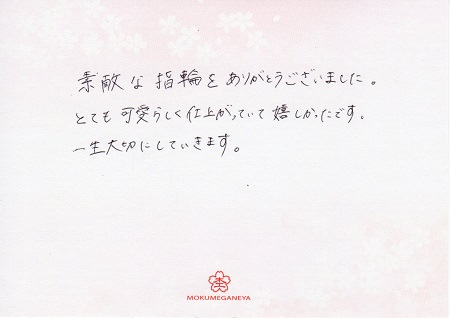 素敵な指輪をありがとうございました。
とても可愛らしく仕上がっていて嬉しかったです。
一生大切にしていきます。
MOKUMEGANEYA